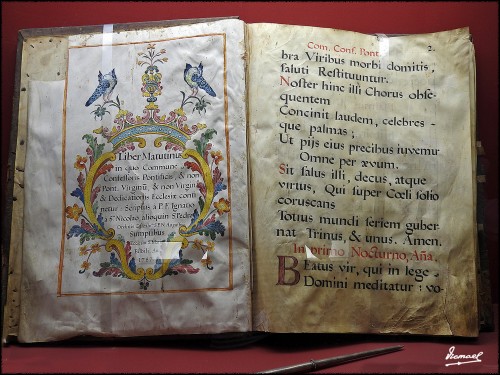 Liber Matutinus
in quo Commune
Confessoris Pontificis, & non
Pont. Virginũ, & non Virginũ
& Dedicationis Ecclesiæ conti
netur: Scriptus a P.F. Ignatio
a S. Nicolao, alioquin S. Petri
Sumptibus
Com. Conf. Pont. 2.
bra Viribus morbi domitis,
saluti Restituuntur.
Noster hinc illi Chorus obse-
quentem
Concinit laudem, celebres-
que palmas;
Ut pijs ejus precibus juvemur
Omne per ævum.
Sit salus illi, decus, atque
virtus, Qui super Cœli solio
coruscans
Totius mundi seriem guber
nat Trinus, & unus. Amen.
In primo Nocturno, Aña.
Beatus vir, qui in lege
Domini meditatur: vo-
Viemael